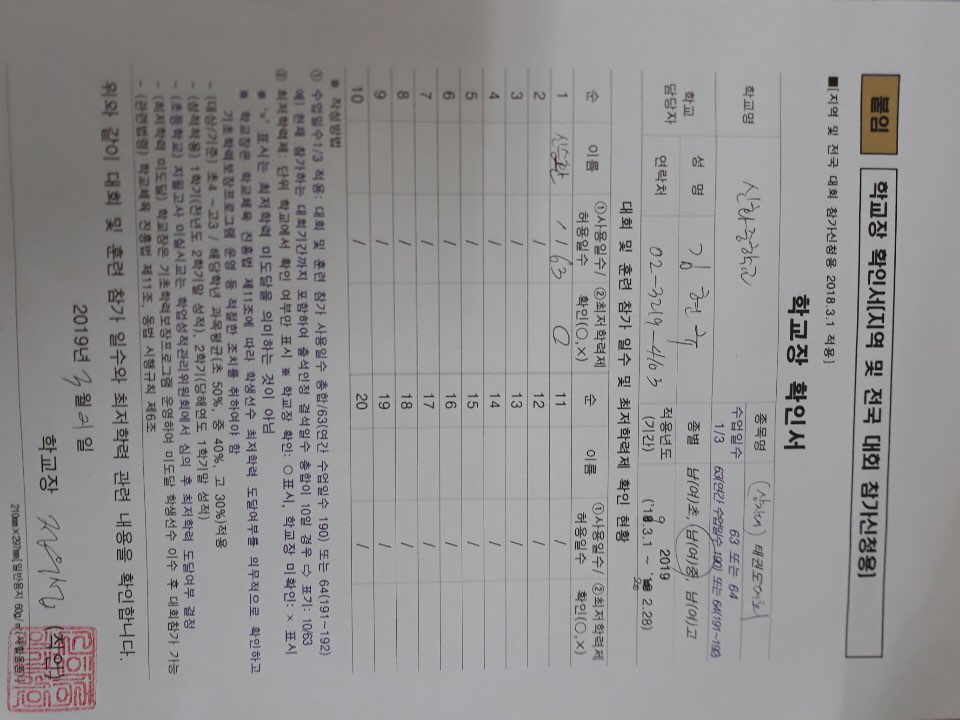 붙임
학교장 확인서[지역 및 전국 대회 참가신청용]
■[지역 및 전국 대회 참가신청용 2018.3.1 적용]
학교장 확인서
학교명 신화중학교 종목명 태권도대회
수업일수 1/3 63 또는 64
63(연간 수업일수 190) 또는 64(191~192)
학교 담당자 성 명 김현욱 종별 남(여)초, 남(여)중, 남(여)고
연락처 02-3219-4163 적용년도 (기간) 2019
대회 및 훈련 참가 일수 및 최저학력제 확인 현황
순 이름 ①사용일수/허용일수 ②최저학력제 확인(○,×) 순 이름 ①사용일수/허용일수 ②최저학력제 확인(○,×)
1 / 63 O 11 /
2 / 12 /
3 / 13 /
4 / 14 /
5 / 15 /
6 / 16 /
7 / 17 /
8 / 18 /
9 / 19 /
10 / 20 /
※ 작성방법
① 수업일수1/3 적용: 대회 및 훈련 참가 사용일수 총합/63(연간 수업일수 190) 또는 64(191~192)
예) 현재 참가하는 대회기간까지 포함하여 출석인정 결석일수 총합이 10일 경우 ⇨ 표기: 10/63
② 최저학력제: 단위 학교에서 확인 여부만 표시 ※ 학교장 확인: ○표시, 학교장 미확인: × 표시
※ '×' 표시는 최저학력 미도달을 의미하는 것이 아님
※ 학교장은 학교체육 진흥법 제11조에 따라 학생선수 최저학력 도달여부를 의무적으로 확인하고
기초학력보장프로그램 운영 등 적절한 조치를 취하여야 함
- (대상/기준) 초4 ~고3 / 해당학년 과목평균(초 50%, 중 40%, 고 30%)적용
- (성적적용) 1학기(전년도 2학기말 성적), 2학기(당해연도 1학기말 성적)
- (초등학교) 지필고사 미실시교는 학업성적관리위원회에서 심의 후 최저학력 도달여부 결정
- (최저학력 미도달) 학교장은 기초학력보장프로그램 운영하여 미도달 학생선수 이수 후 대회참가 가능
- (관련법령) 학교체육 진흥법 제11조, 동법 시행규칙 제6조
위와 같이 대회 및 훈련 참가 일수와 최저학력 관련 내용을 확인합니다.
2019년 3월 21일
학교장 (직인)
210㎜×297㎜[일반용지 60g/㎡(재활용품)]